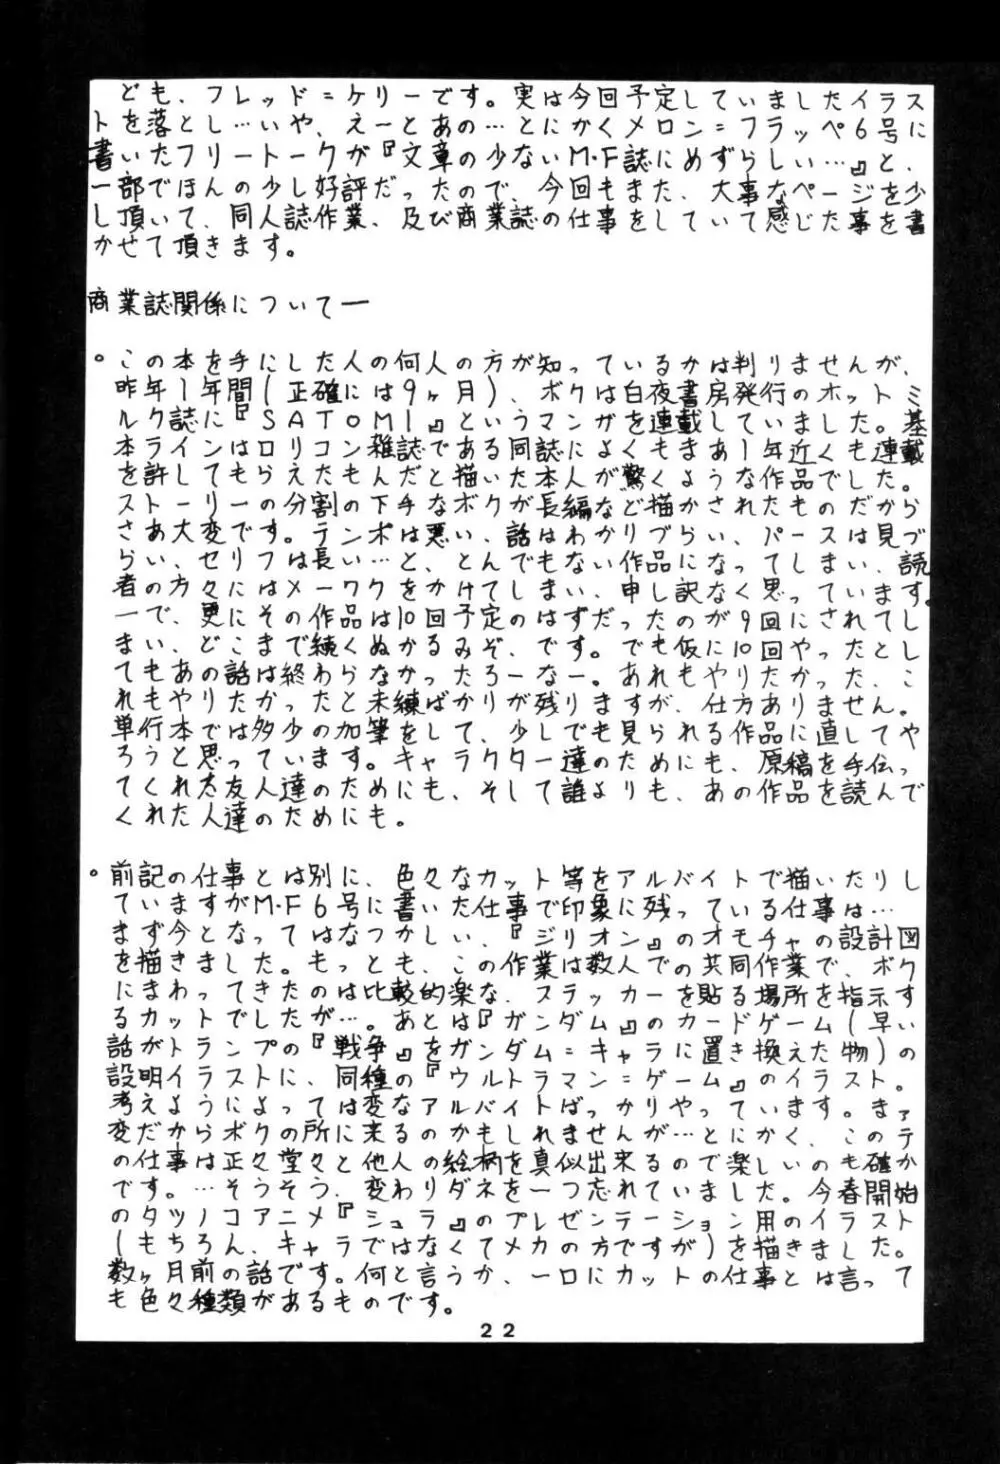 ども、フレッド=ケリーです。実は今回予定していましたイラス
トを落とし…いや、えーとあの…とにかくメロン=フラッペ6号に
書いたフリートークが『文章の少ないM・F誌にめずらしい…』と、
一部でほんの少し好評だったので、今回もまた、大事なページを少
し頂いて、同人誌作業、及び商業誌の仕事をしていて感じた事を書
かせて頂きます。
商業誌関係について―
。この本を手にした人の何人の方が知っているかは判りませんが、
昨年1年間(正確には9ヶ月)、ボクは白夜書房発行のホット・ミ
ルク誌に『SATOMI』というマンガを連載していました。基
本ラインはロリコン雑誌である同誌によくもまあ1年近くも連載
を許してもらえたもんだと描いた本人が驚くような作品でした。
ストーリーの分割の下手なボクが長編など描かされたものだから
さあ大変です。テンポは悪い、話はわかりづらい、パースは見づ
らい、セリフは長い…と、とんでもない作品になってしまい、読
者の方々にはメーワクをかけてしまい、申し訳なく思っています。
一で、更にその作品は10回予定のはずだったのが9回にされてし
まい、どこまで続くぬかるみぞ、です。でも仮に10回やったとし
てもあの話は終わらなかったろーなー。あれもやりたかった、こ
れもやりたかったと未練ばかりが残りますが、仕方ありません。
単行本では多少の加筆をして、少しでも見られる作品に直してや
ろうと思っています。キャラクター達のためにも、原稿を手伝っ
てくれた友人達のためにも、そして誰よりも、あの作品を読んで
くれた人達のためにも。
。前記の仕事とは別に、色々なカット等をアルバイトで描いたりし
ていますがM・F6号に書いた仕事で印象に残っている仕事は…
まず今となってはなつかしい、『ジリオン』のオモチャの設計図
を描きました。もっとも、この作業は数人での共同作業で、ボク
にまわってきたのは比較的楽な、スラッカーを貼る場所を指示す
るカットでしたが…。あとは『ガンダム』のカードゲーム(早い
話がトランプの『戦争』をガンダム=キャラに置き換えた物)の
説明イラストに、同種の『ウルトラマン=ゲーム』のイラスト。
考えようによっては変なアルバイトばっかりやっています。まァ
変だからボクの所に来るのかもしれませんが…とにかく、このテ
の仕事は正々堂々と他人の絵柄を真似出来るので楽しいのも確か
です。…そうそう、変わりダネを一つ忘れていました。今春開始
のタツノコアニメ『シュラ』のプレゼンテーション用のイラスト
(もちろん、キャラではなくてメカの方ですが)を描きました。
数ヶ月前の話です。何と言うか、一口にカットの仕事とは言って
も色々種類があるものです。
22